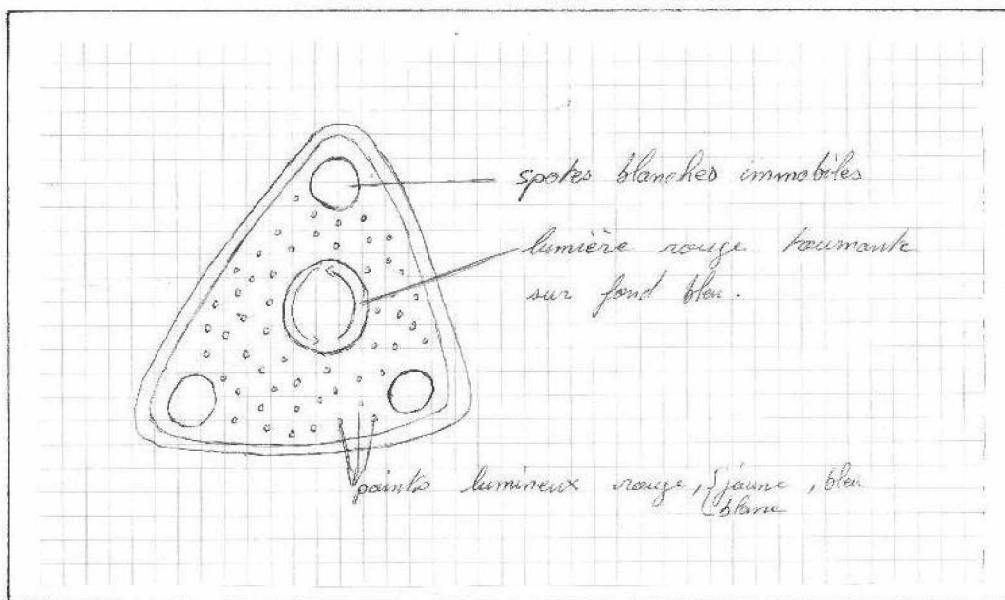 spotes blanches immobiles
lumière rouge tournante
sur fond bleu.
points lumineux rouge, { jaune, bleu
blanc